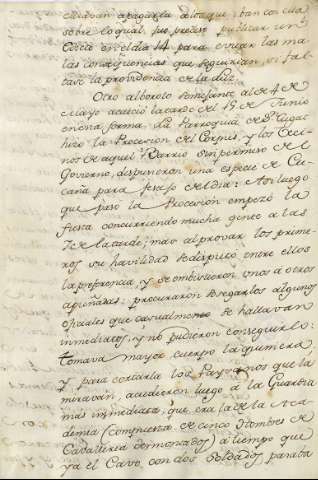 sobre lo qual, fue preciso publicar un
Edicto en el dia 14 para evitar las ma-
las consequencias que seguirian, si fal-
tase la providencia de la Luz.
Otro alboroto semejante al de 4 de
Mayo acaeció la tarde del 15 de Junio
en esta forma. La Parroquia de
hizo la Procesion del Corpus, y los Veci-
nos de aquel Barrio sin permiso del
Govierno, dispusieron una especie de Cu-
caña para del dia: Asi luego
que pasó la Procesion empezó la
fiesta concurriendo mucha gente a las
7 de la tarde; mas al provar los prime-
ros su havilidad se disputó entre ellos
la preferencia, y se embistieron unos á otros
apiñadas: procuraron sosegarlos algunos
oficiales que casualmente se hallavan
inmediatos, y no pudieron conseguirlo:
tomava mayor cuerpo la quimera
y para cortarla los Paysanos que la
miravan, acudieron luego á la Guardia
mas inmediata, que era la de la Aca-
demia (compuesta de cinco Hombres de
Cavalleria desmontados) á tiempo que
ya el Cavo, con dos Soldados